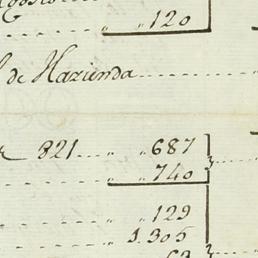 „ 120
de Hazienda
821 „ 687
„ 740
„ „ 129
„ 1.305